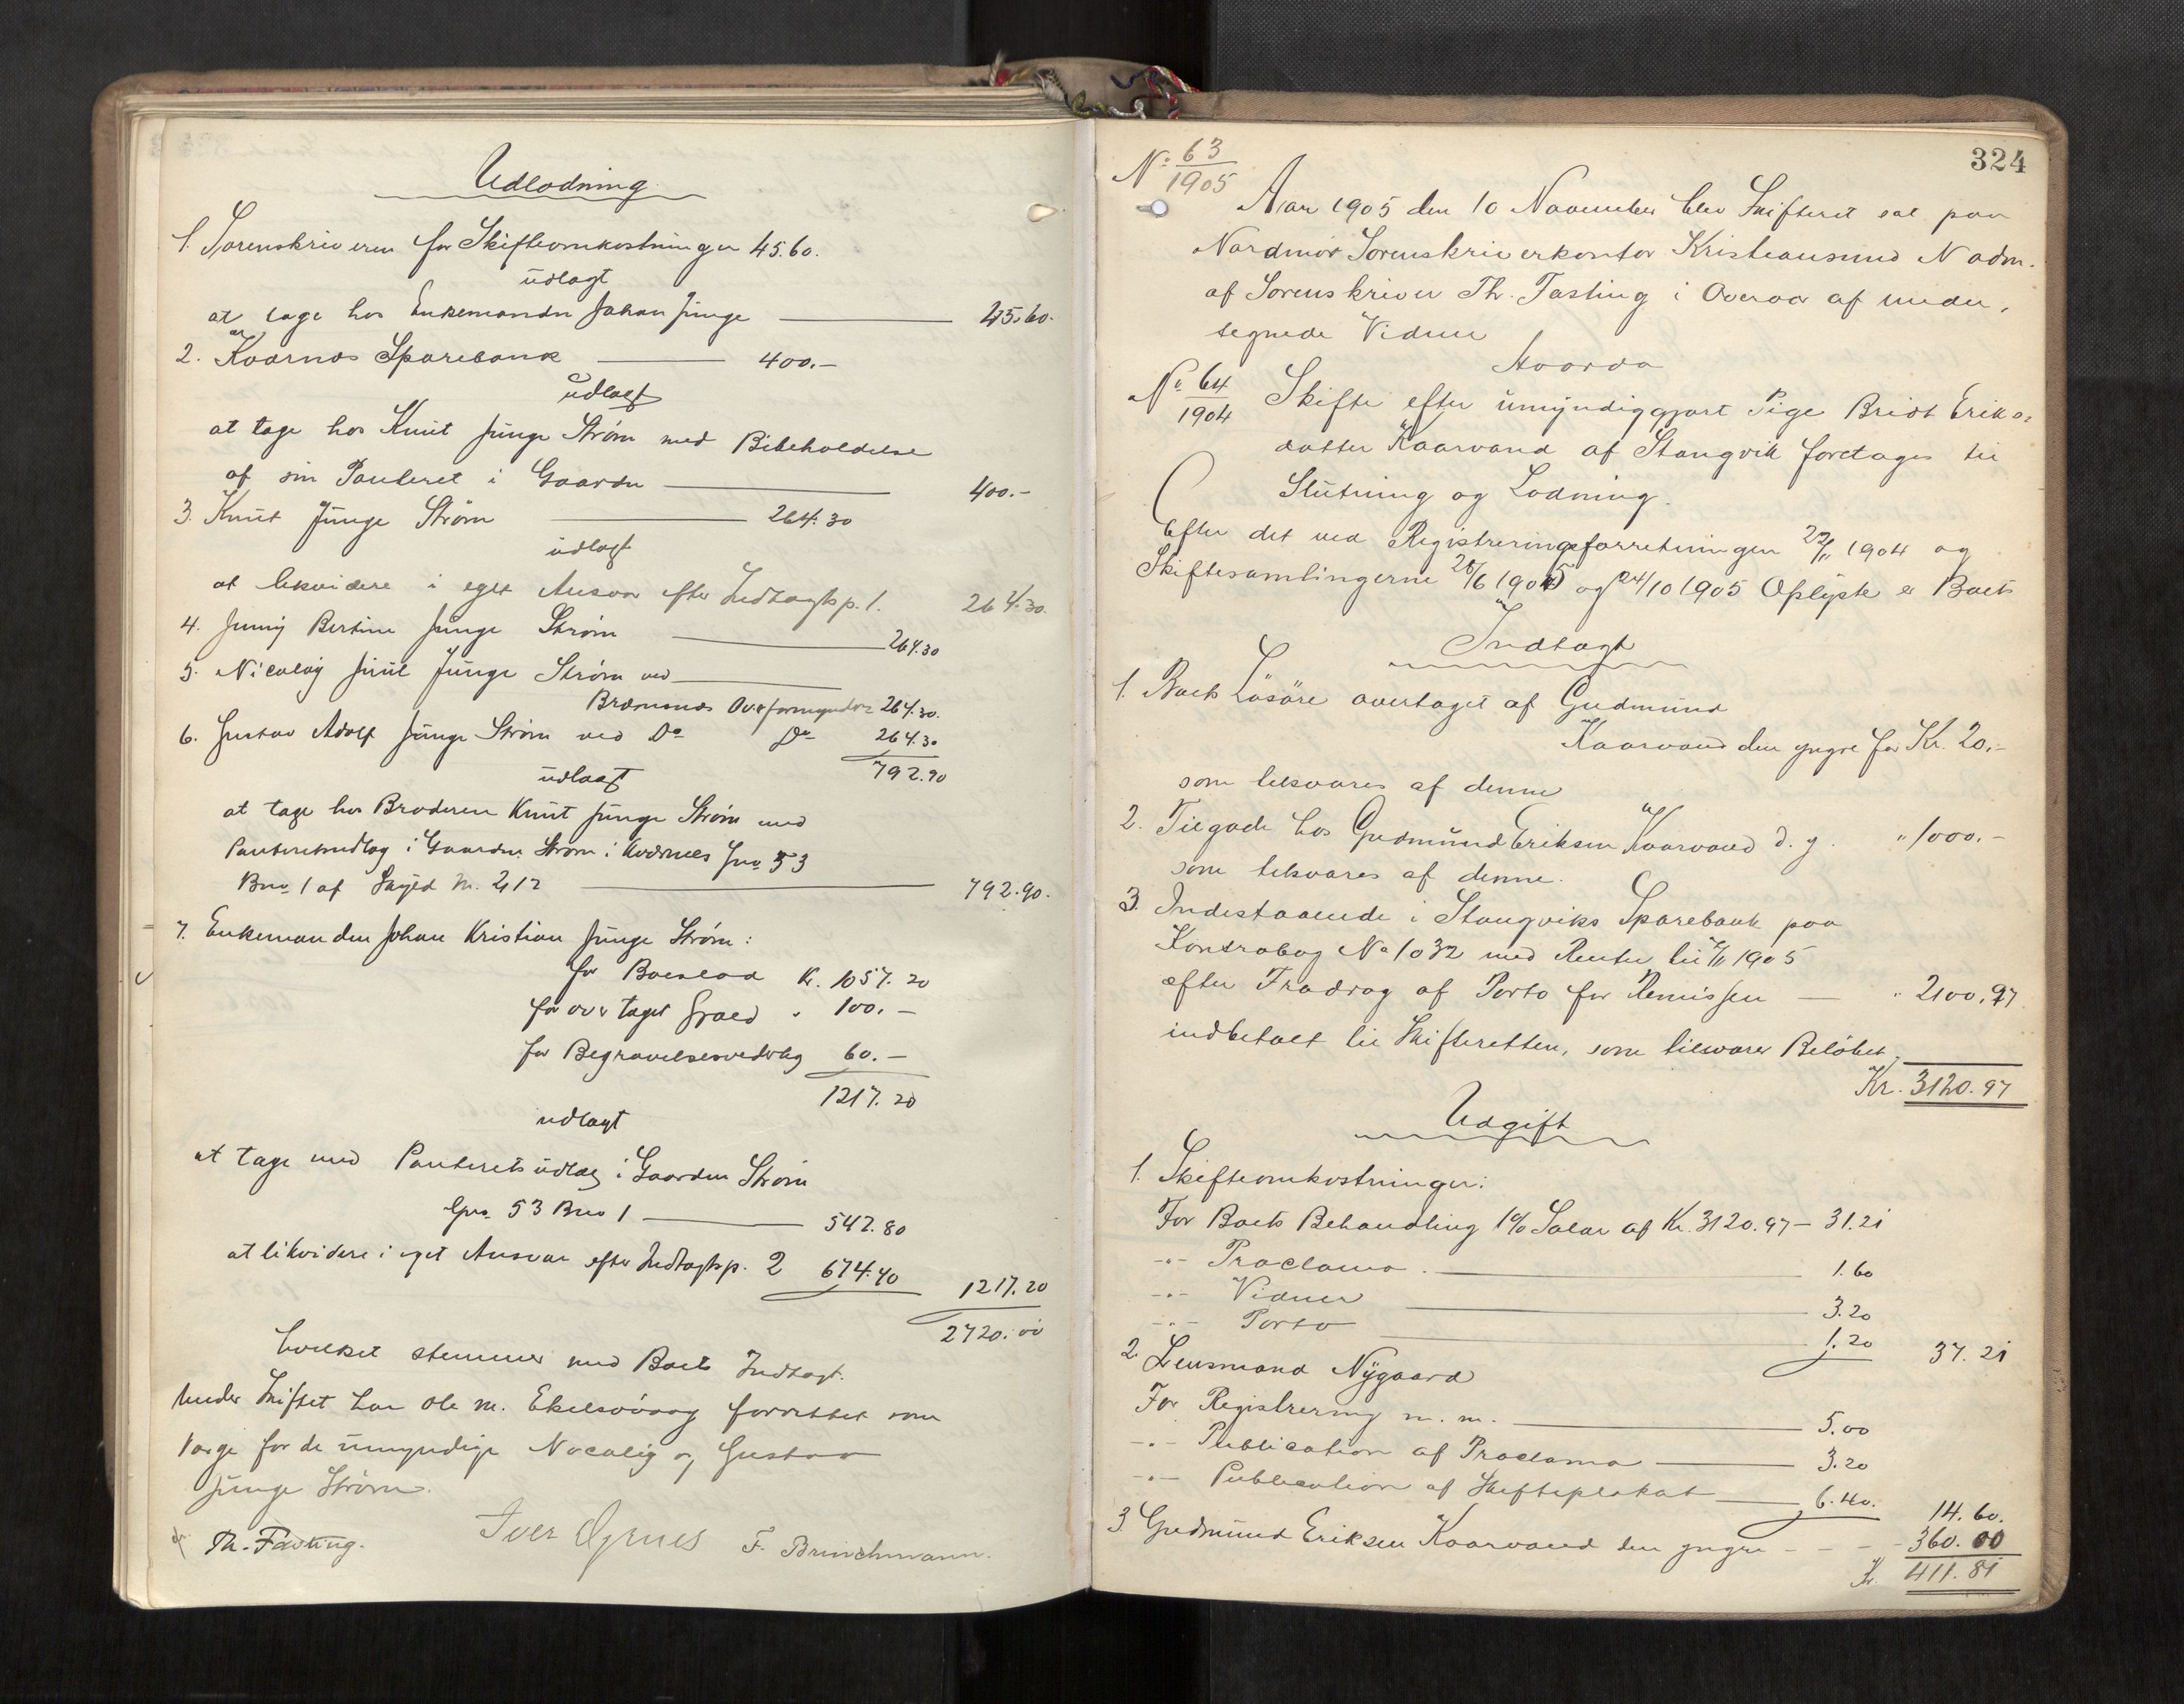 Udlodning
1. Sorenskriveren for Skifteomkostninger 45.60.
udlagt
at tage hos Enkemanden Johan Junge 45.60.
2. Kværnæs Sparebank 400.-
udlagt
at tage hos Knut Junge Strøm med Bibeholdelse
af sin Panteret i Gaarden 400.-
3. Knut Junge Strøm 264.30
udlagt
at likvidere i eget Ansvar efter Indtægtsp. 1. 264.30
4. Jenny Bertine Junge Strøm 264.30
5. Nicolay Juul Junge Strøm ved
Bremsnæs Overformynderi 264.30.
6. Gustav Adolf Junge Strøm ved Do Do 264.30
792.90
udlagt
at tage hos Broderen Knut Junge Strøm med
Panteretsudlæg i Gaarden Strøm i Kværnes Gno 53
Bno 1 af Skyld M. 2,12 792.90.
7. Enkemanden Johan Kristian Junge Strøm:
for Boeslod Kr. 1057.20
for overtaget Gjæld " 100.-
for Begravelsesvederlag 60.-
1217.20
udlagt
at tage med Panteretsudlæg i Gaarden Strøm
Gno 53 Bno 1 542.80
at likvidere i eget Ansvar efter Indtægtsp. 2 674.40 1217.20
2720.00
hvilket stemmer med Boets Indtægt.
Under Skiftet har Ole M. Ekelsvaag forrettet som
Værge for de umyndige Nocolig og Gustav
Junge Strøm.
Th. Fasting. Iver Ognes F. Brinchmann.
324
No 63/1905
Aar 1905 den 10 November blev Skifteret sat paa
Nordmør Sorenskriverkontor Kristiansund N adm.
af Sorenskriver Th. Fasting i Overvær af under,
tegnede Vidner
Hvorda
No 64/1904 Skifte efter umyndiggjort Pige Bridt Eriks=
datter Kaarvand af Stangvik foretages til
Slutning og Lodning.
Efter det ved Registreringsforretningen 22/11 1904 og
Skiftesamlingerne 26/6 1905 og 24/10 1905 Oplyste er Boets
Indtægt
1. Boets Løsøre overtaget af Gudmund
Kaarvand den yngre for Kr. 20.-
som tilsvares af denne
2. Tilgode hos Gudmund Eriksen Kaarvand d. y. " 1000.-
som tilsvares af denne.
3. Indestaaende i Stangviks Sparebank paa
Kontrabog No 1032 med Renter til /11 1905
efter Fradrag af Porto for Remissen " 2100.97
indbetalt til Skifteretten, som tilsvarer Beløbet.
Kr. 3120.97
Udgift
1. Skifteomkostninger:
For Boets Behandling 1% Salær af Kr. 3120.97 - 31.21
-"- Proclama 1.60
-"- Vidner 3.20
-"- Porto 1.20 37.21
2. Lensmand Nygaard
For Registrering m. m. 5.00
-"- Publication af Proclama 3.20
-"- Publication af Skifteplakat 6.40. 14.60.
3 Gudmund Eriksen Kaarvand den yngre - - - - 360.00
Kr. 411.81